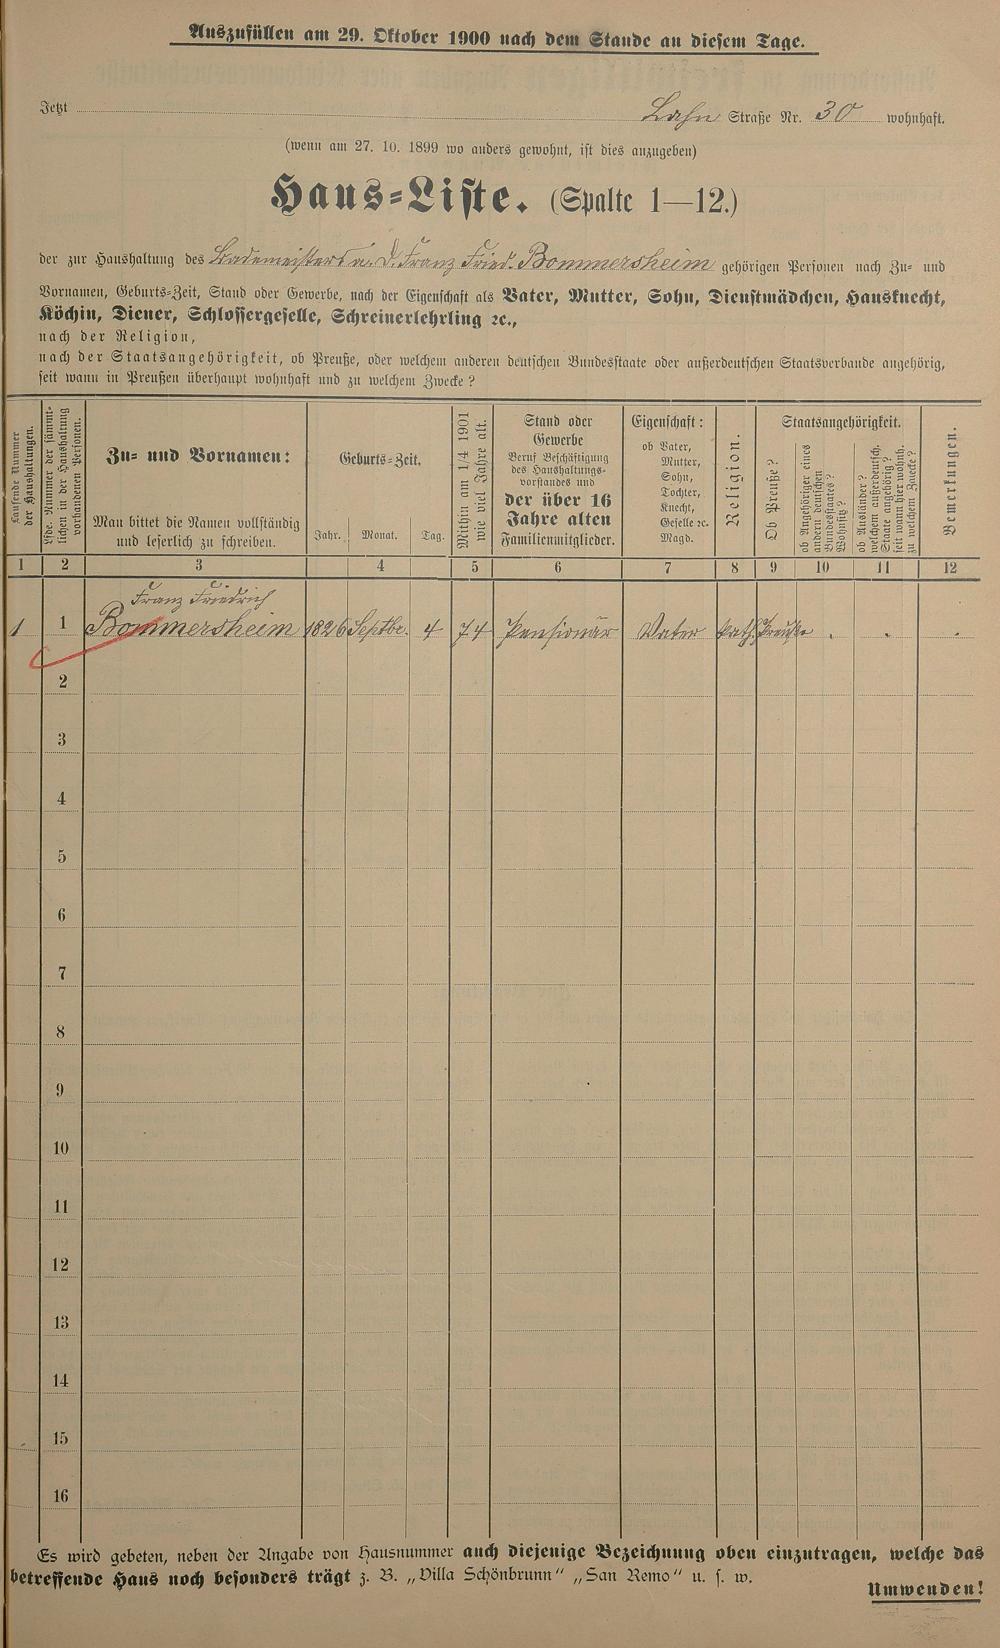 Auszufüllen am 29. Oktober 1900 nach dem Stande an diesem Tage.
Jetzt Lahn Straße Nr. 30 wohnhaft.
(wenn am 27. 10. 1899 wo anders gewohnt, ist dies anzugeben)
Haus-Liste. (Spalte 1—12.)
der zur Haushaltung des Bademeisters a. D. Franz Fried. Bommersheim gehörigen Personen nach Zu- und
Vornamen, Geburts-Zeit, Stand oder Gewerbe, nach der Eigenschaft als Vater, Mutter, Sohn, Dienstmädchen, Hausknecht,
Köchin, Diener, Schlossergeselle, Schreinerlehrling ꝛc.,
nach der Religion,
nach der Staatsangehörigkeit, ob Preuße, oder welchem anderen deutschen Bundesstaate oder außerdeutschen Staatsverbande angehörig,
seit wann in Preußen überhaupt wohnhaft und zu welchem Zwecke?
Laufende Nummer
der Haushaltungen.
Lfde. Nummer der sämmt-
lichen in der Haushaltung
vorhandenen Personen.
Zu- und Vornamen:
Man bittet die Namen vollständig
und leserlich zu schreiben.
Geburts-Zeit.
Jahr. Monat. Tag.
Mithin am 1/4 1901
wie viel Jahre alt.
Stand oder
Gewerbe
Beruf Beschäftigung
des Haushaltungs-
vorstandes und
der über 16
Jahre alten
Familienmitglieder.
Eigenschaft:
ob Vater,
Mutter,
Sohn,
Tochter,
Knecht,
Geselle ꝛc.
Magd.
Religion.
Staatsangehörigkeit.
Ob Preuße?
ob Angehöriger eines
andern deutschen
Bundesstaates?
Wohnsitz?
ob Ausländer?
welchem außerdeutsch.
Staate angehörig?
seit wann hier wohnh.
zu welchem Zwecke?
Bemerkungen.
1 2 3 4 5 6 7 8 9 10 11 12
Franz Friedrich
1 1 Bommersheim 1826 Septbr. 4 74 Pensionär Vater kath. Preuße . . .
2
3
4
5
6
7
8
9
10
11
12
13
14
15
16
Es wird gebeten, neben der Angabe von Hausnummer auch diejenige Bezeichnung oben einzutragen, welche das
betreffende Haus noch besonders trägt z. B. „Villa Schönbrunn“ „San Remo“ u. s. w.
Umwenden!